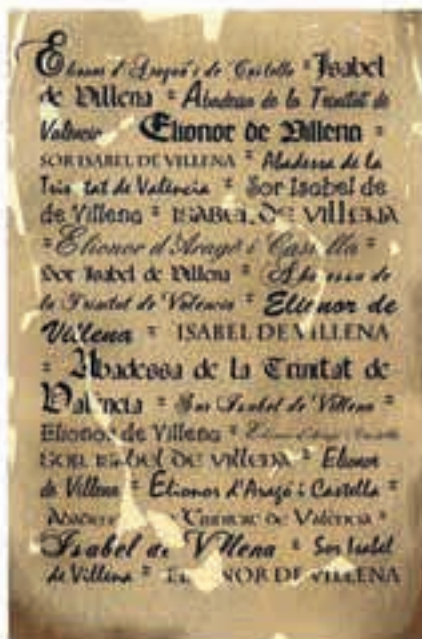 Elionor d'Aragó i de Castella * Isabel
de Villena * Abadessa de la Trinitat de
València Elionor de Villena *
SOR ISABEL DE VILLENA * Abadessa de la
Trinitat de València * Sor Isabel de
de Villena * ISABEL DE VILLENA
* Elionor d'Aragó i Castella *
Sor Isabel de Villena * Abadessa de
la Trinitat de Valencia * Elionor de
Villena * ISABEL DE VILLENA
* Abadessa de la Trinitat de
València * Sor Isabel de Villena *
Elionor de Villena *
SOR ISABEL DE VILLENA * Elionor
de Villena * Elionor d'Aragó i Castella *
Trinitat de València *
Isabel de Villena * Sor Isabel
de Villena * NOR DE VILLENA